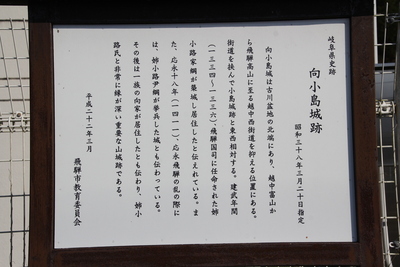 岐阜県史跡
向小島城跡
昭和三十八年三月二十日指定
向小島城は古川盆地の北端にあり、越中富山か
ら飛騨高山に至る越中西街道を抑える位置にある。
街道を挟んで小島城跡と東西相対する。建武年間
(一三三四~一三三六)、飛騨国司に任命された姉
小路家綱が築城し居住したと伝えれている。ま
た、応永十八年(一四一一)、応永飛騨の乱の際に
は、姉小路尹綱が挙兵した城とも伝わっている。
その後は一族の向家が居住したとも伝わり、姉小
路氏と非常に縁が深い重要な山城跡である。
平成二十二年三月
飛騨市教育委員会